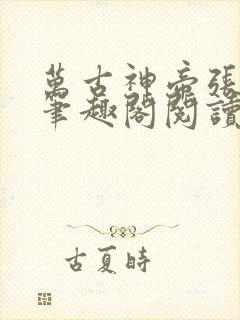 萬古神帝張
筆趣閣閱讀
古夏時